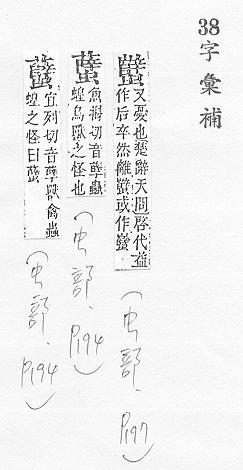 38字彙補
又憂也楚辭天問啓代益
作后卒然離蠥或作
(虫部、P197)
切音孽蟲
蝗鳥獸之怪也
(虫部、P194)
宜列切音孽獸禽蟲
蝗之怪曰
(虫部、P194)